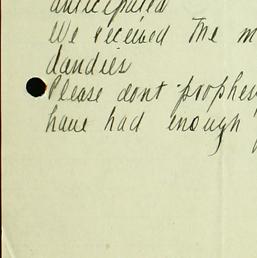 anticipated
We received The m
dandies
Please dont prophes
have had enough